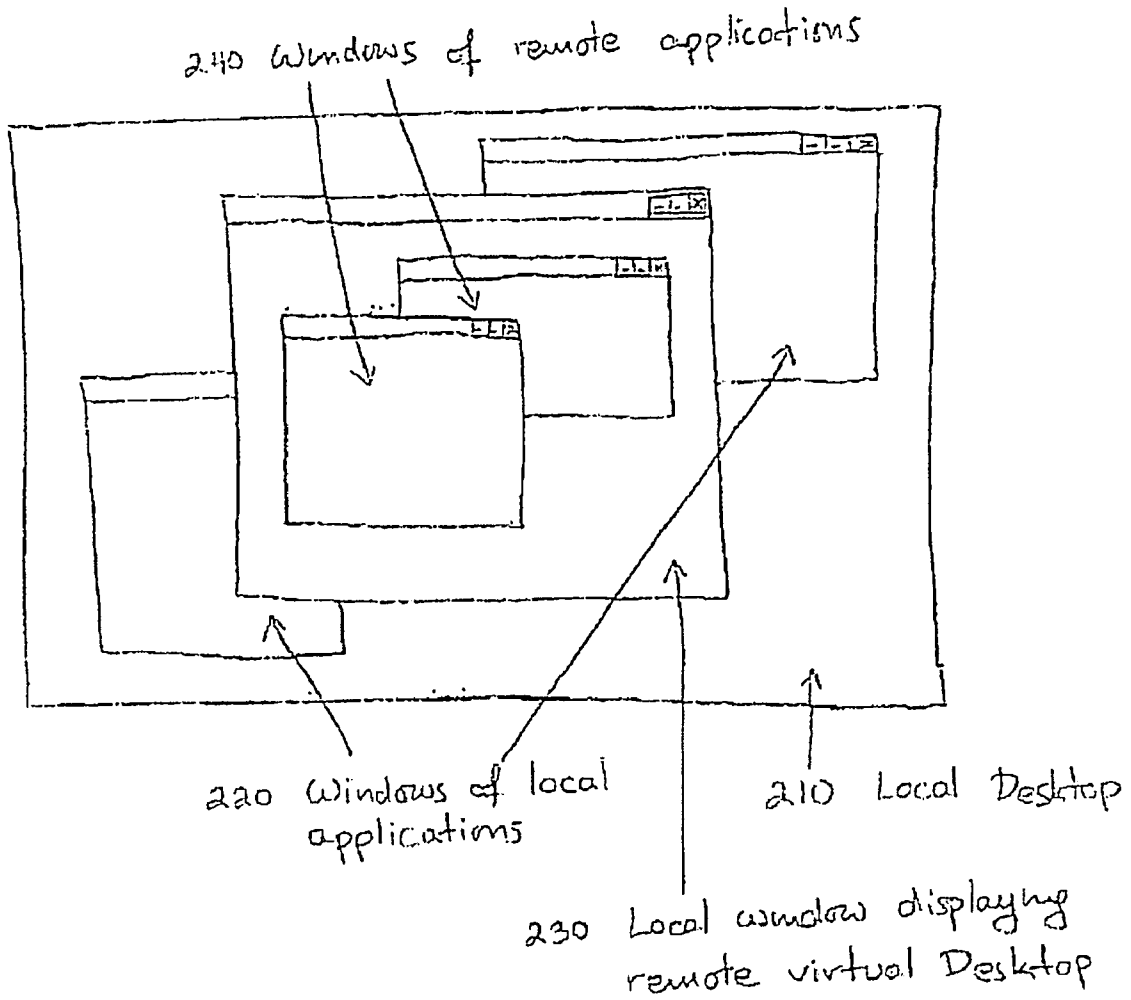 240 Windows of remote applications
220 Windows of local
applications
210 Local Desktop
230 Local window displaying
remote virtual Desktop